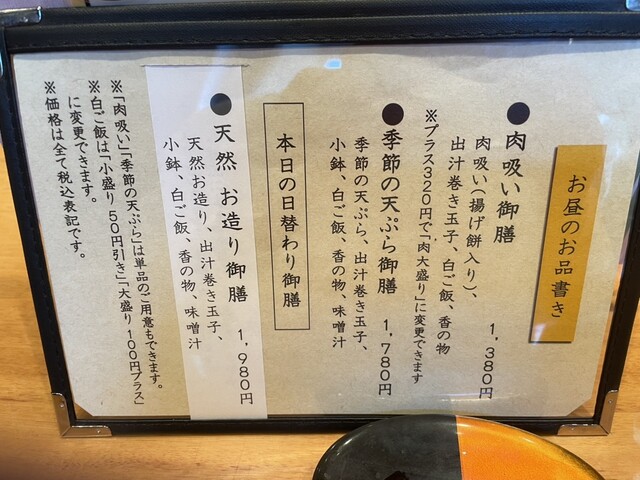 お昼のお品書き
●肉吸い御膳 1,380円
肉吸い(揚げ餅入り)、
出汁巻き玉子、白ご飯、香の物
※プラス320円で「肉大盛り」に変更できます
●季節の天ぷら御膳 1,780円
季節の天ぷら、出汁巻き玉子、
小鉢、白ご飯、香の物、味噌汁
本日の日替わり御膳
●天然 お造り御膳 1,980円
天然お造り、出汁巻き玉子、
小鉢、白ご飯、香の物、味噌汁
※「肉吸い」「季節の天ぷら」は単品のご用意もできます。
※白ご飯は「小盛り 50円引き」「大盛り 100円プラス」
に変更できます。
※価格は全て税込表記です。